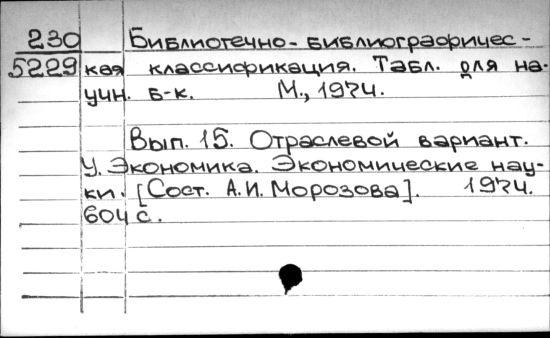 230 Библиотечно-библиографичес-
5229 кая классификация. Табл. для на-
учн. б-к. М., 1974.
Вып. 15. Отраслевой вариант.
У. Экономика. Экономические нау-
ки. [Сост. А.И. Морозова]. 1974.
604 с.